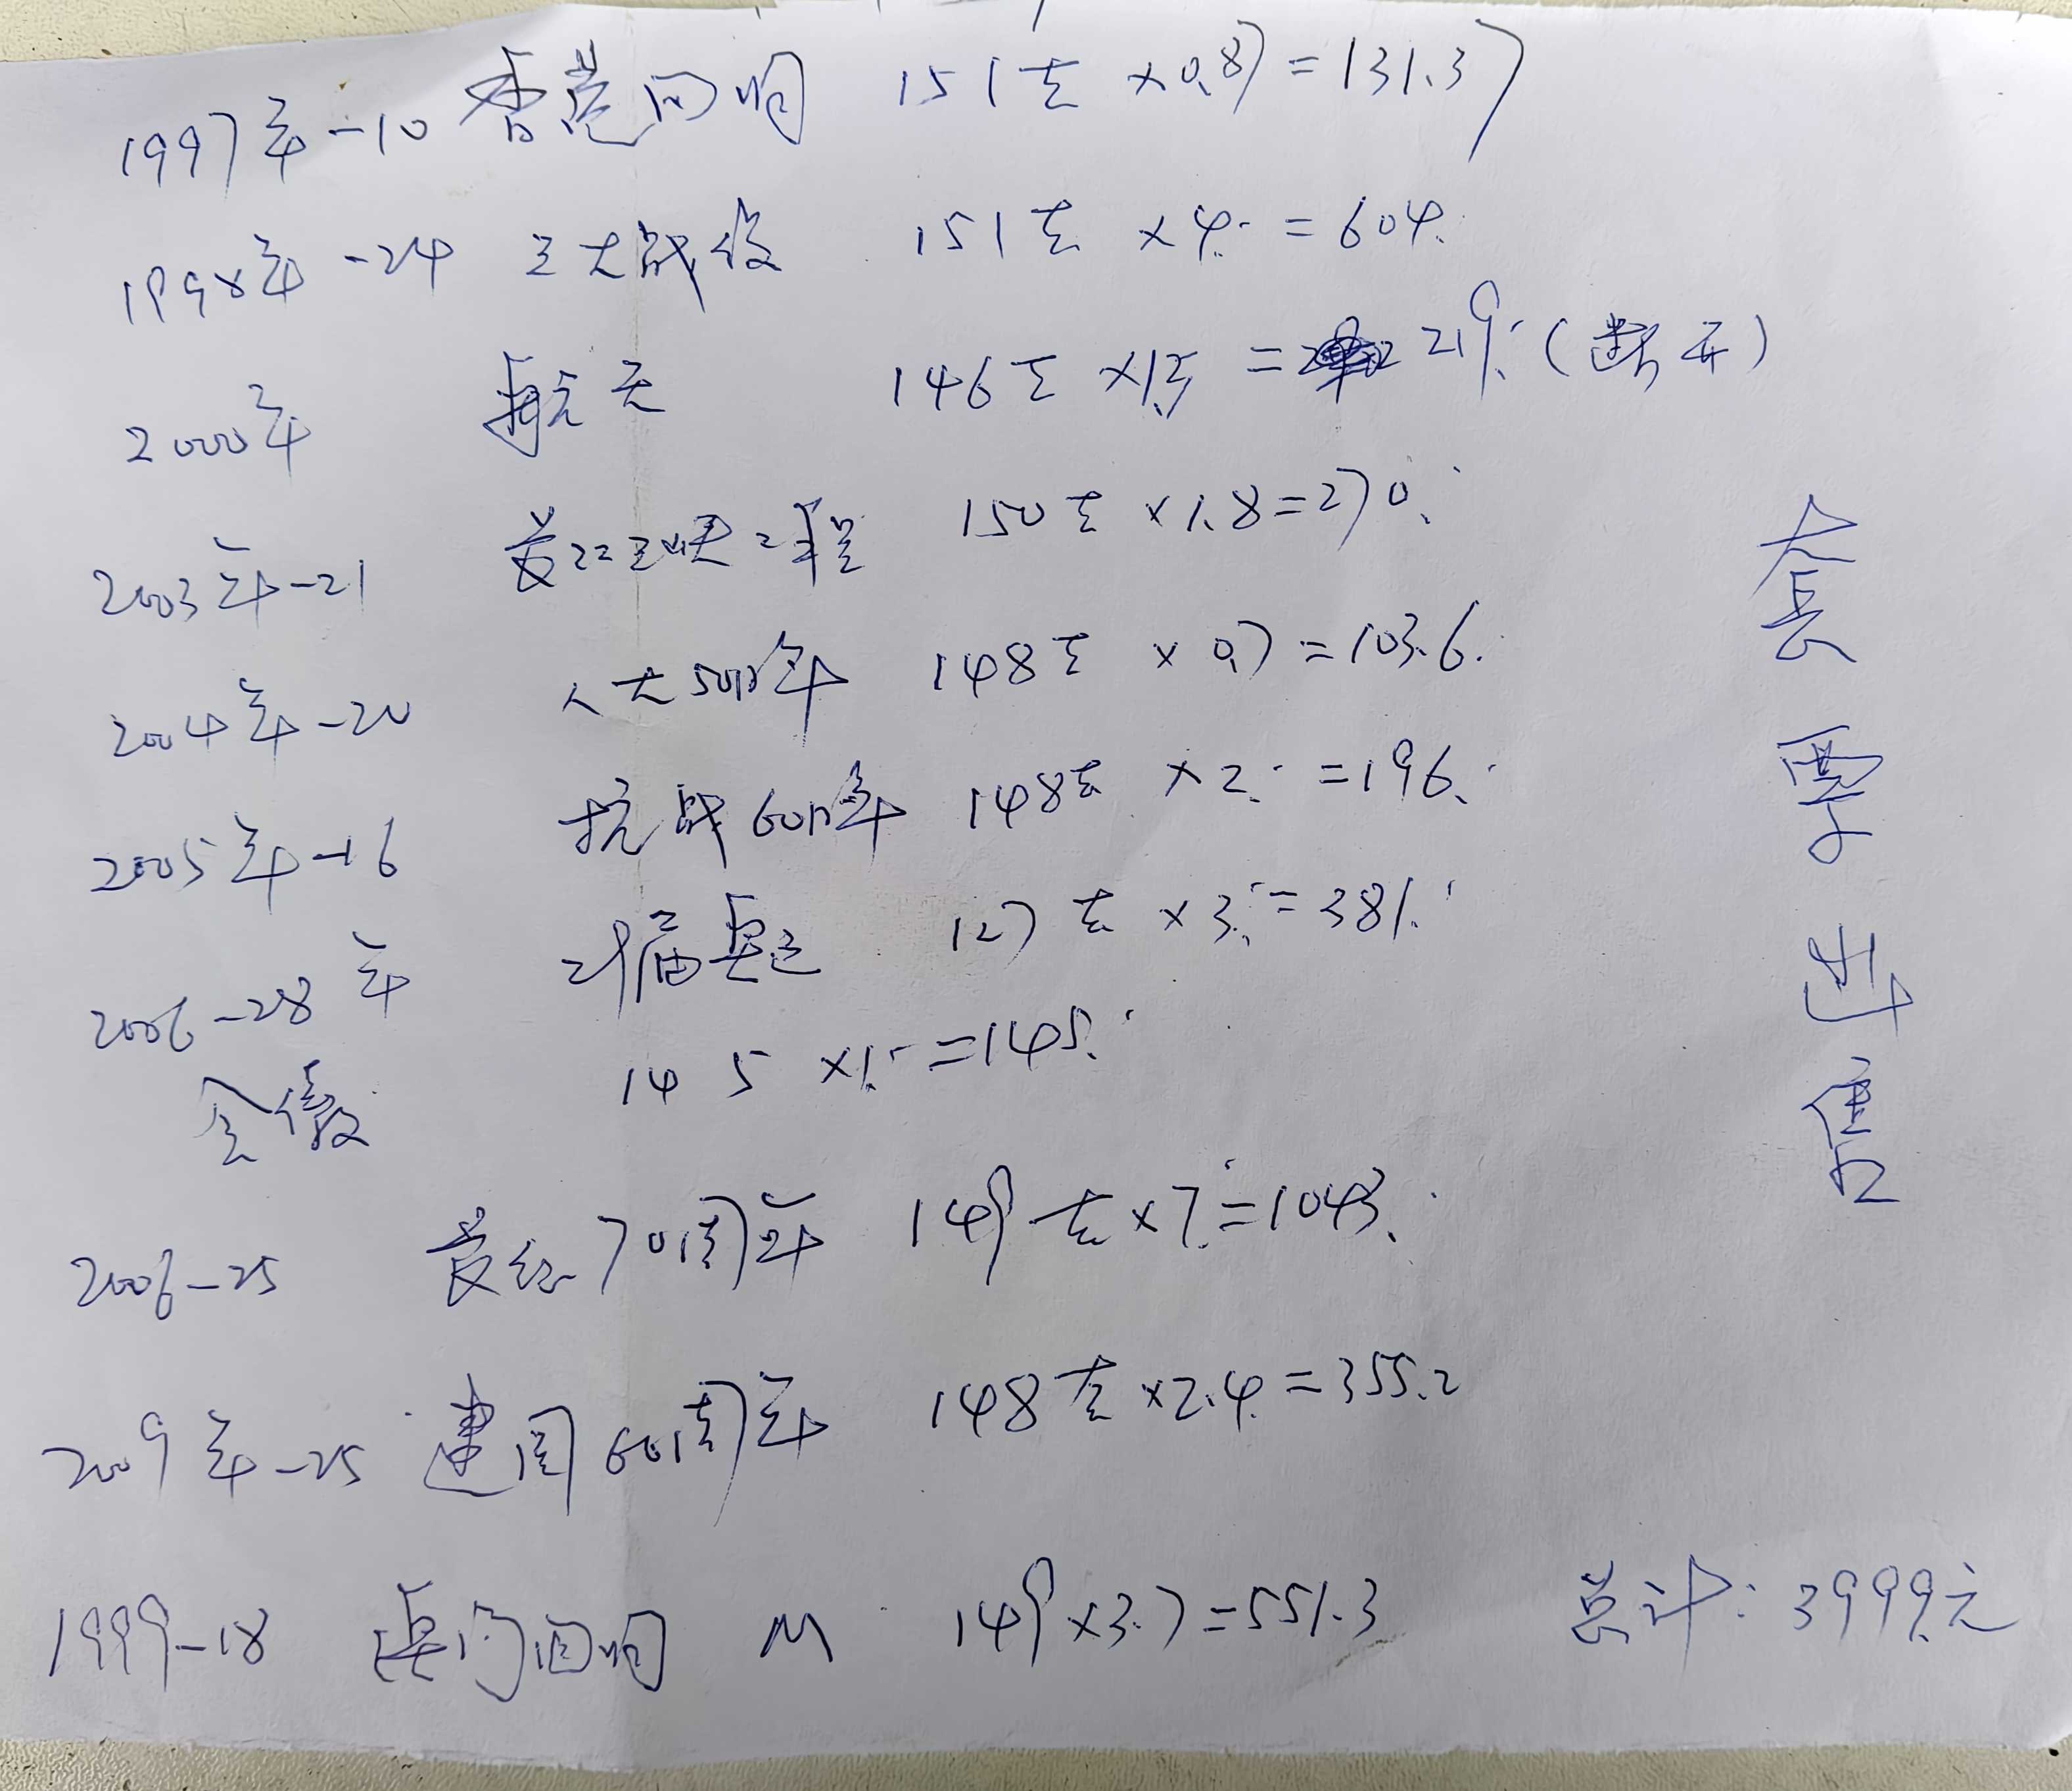 1997年-10 香港回归 151套 ×0.87=131.37
1998年-24 三大战役 151套 ×4.=604.
2000年 航天 146套 ×1.5 = 219.(撕开)
2003年-21 长江三峡工程 150套 ×1.8=270.
2004年-20 人大50周年 148套 ×0.7=103.6.
2005年-16 抗战60周年 148套 ×2.=196.
2006-28年 29届奥运 127套 ×3.=381.
会徽 145 ×1.=145.
2006-25 长征70周年 149套×7.=1043.
2009年-25 建国60周年 148套×2.4=355.2
1999-18 澳门回归 M 149×3.7=551.3 总计:3999.元
套票出售